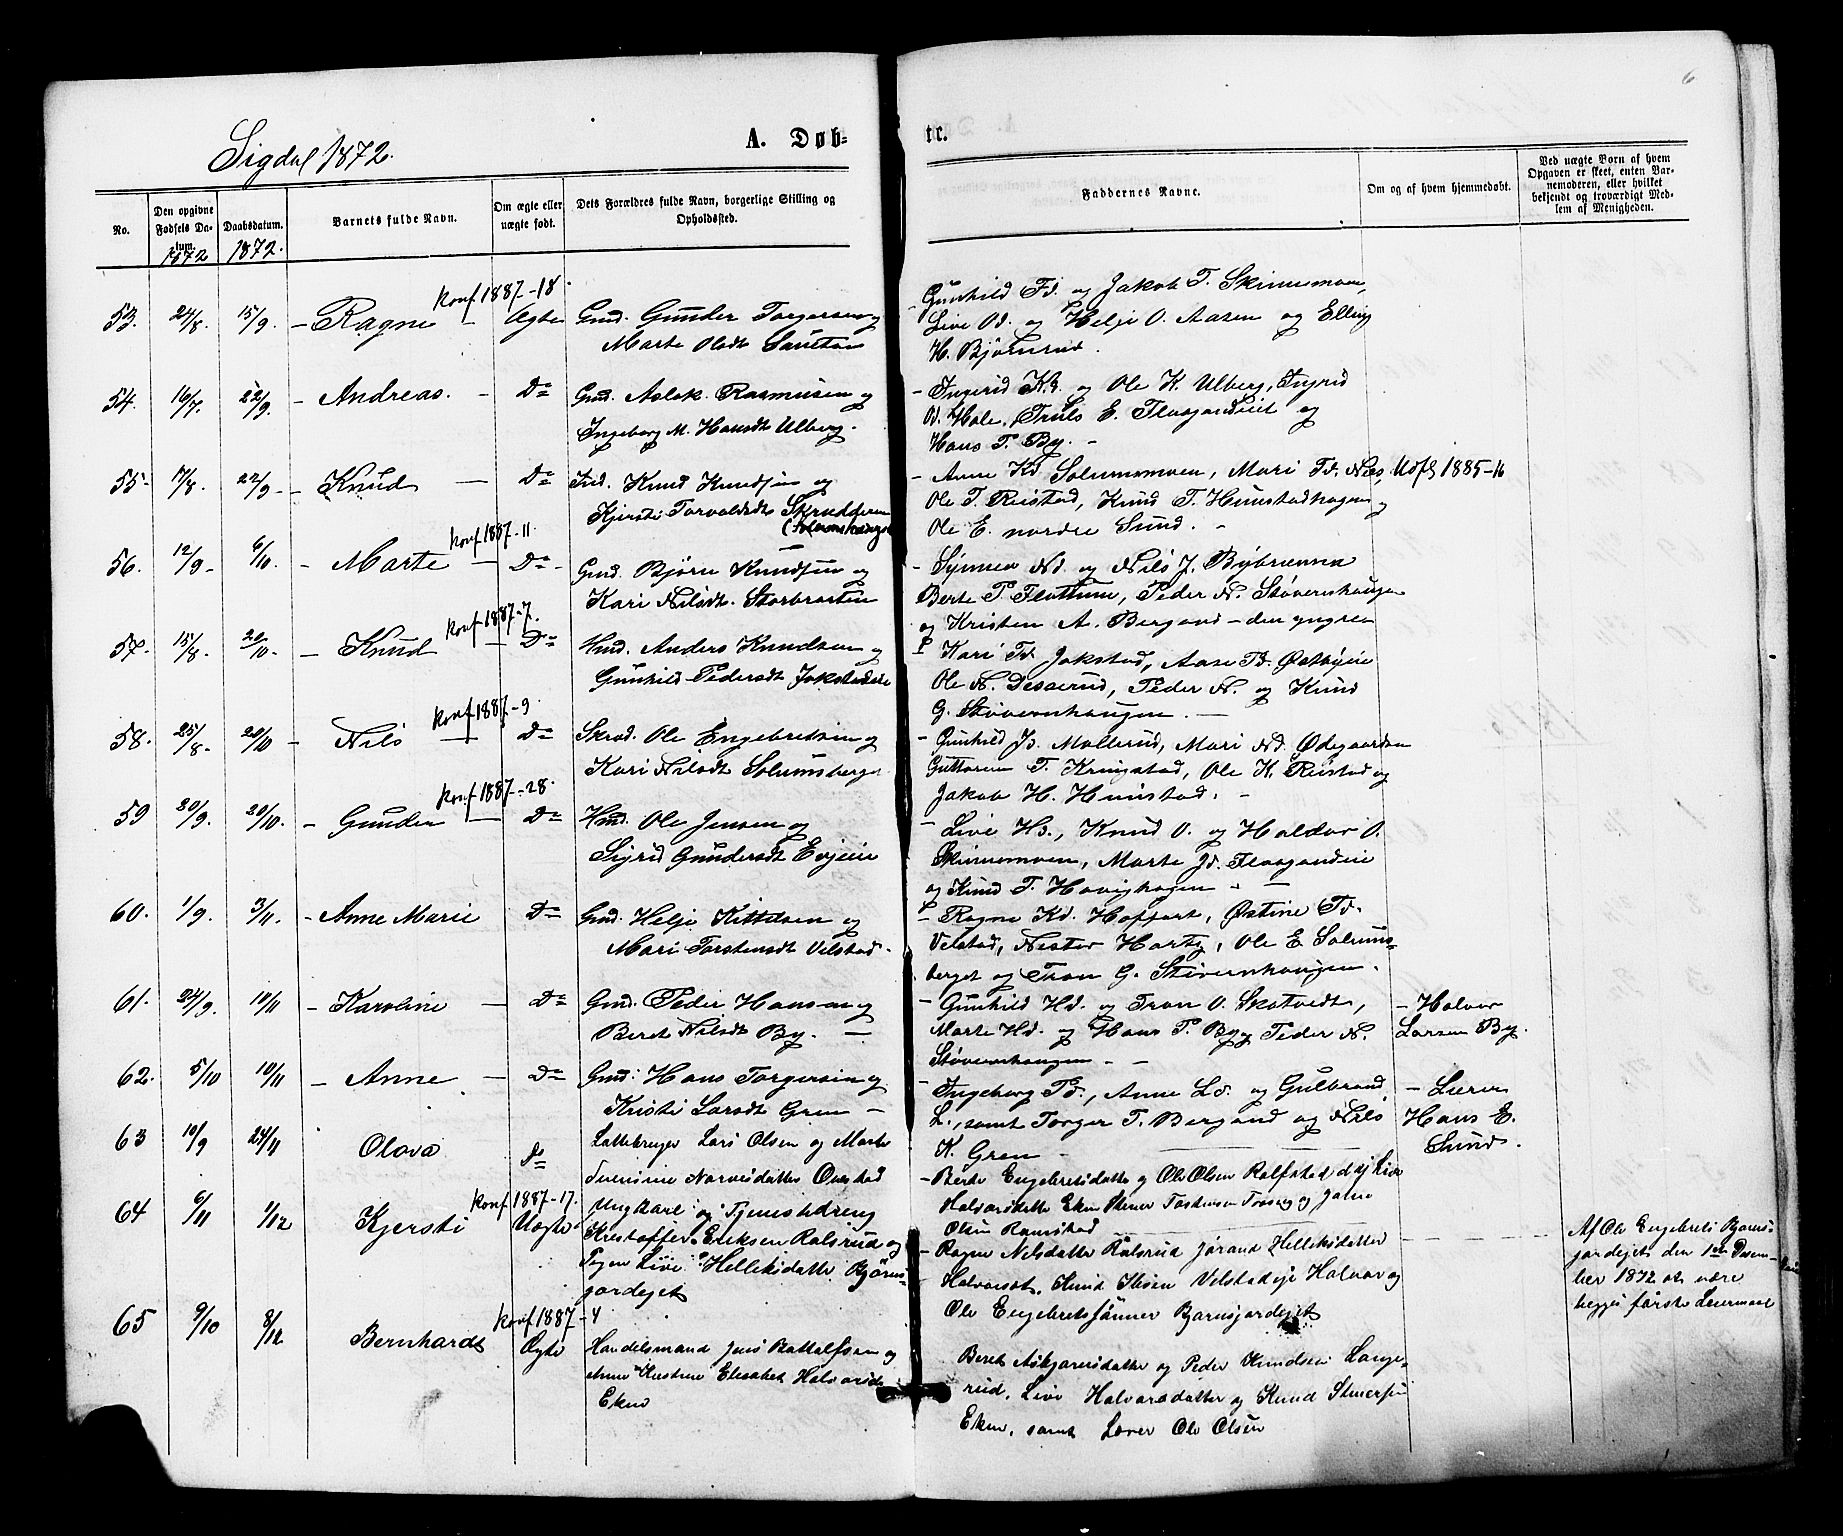 6
Sigdal 1872.
A. Døb-
te.
No.
Den opgivne Fødsels Da-tum.
1872
Daabsdatum.
1872.
Barnets fulde Navn.
Om ægte eller uægte født.
Dets Forældres fulde Navn, borgerlige Stilling og Opholdssted.
Faddernes Navne.
Om og af hvem hjemmedøbt.
Ved uægte Børn af hvem Opgaven er skeet, enten Bar-nemoderen, eller hvilket bekjendt og troværdigt Med-lem af Menigheden.
konf 1887-18.
53. 24/8. 15/9. - Ragne - Ægte Gmd. Gunder Torgersen og
Marte Olsdt
Gunhild Td. og Jakob T. Skinnesmoen,
Live Od. og Helje O. Aasen og Elling
H. Bjørnrud.
54. 16/7. 22/9. - Andreas. - Do Gmd. Aslak Rasmusen og
Ingeborg M. Hansdt Ulberg.
- Ingerid Kd. og Ole K. Ulberg, Ingrid
Od. Hole, Truls E. Flaagandeiet og
Hans P. By. -
55. 17/8. 22/9 - Knud - Do Ind. Knud Knudsen og
Kjersti Torvaldsdt Skrudderen
- Anne Kd Solumsmoen, Mari Td. Næs,
Ole T. Reistad, Knud T. Hunstadhagen og
Ole E. nordre Sund. -
1885-16
konf 1887-11
56. 12/9 - 6/10. - Marte - Do - Gmd. Bjørn Knudsen og
Kari Nilsdt. Storbraaten
- Synnea Nd. og Nils J. Bybrænna
Berte P. Flattum, Peder N. Støvernhaugen
og Kristen A. Bergand - den yngre
konf 1887-7.
57. 15/8. 20/10. - Knud - Do Hmd. Anders Knudsen og
Gunhild Pedersdt Jokstadeie
Kari Td. Jokstad, Aase Td. Østbyeie
Ole N. Desserud, Peder N. og Knud
G. Støvernhaugen. -
konf 1887-9
58. 25/8 - 20/10 - Nils - Do Ole Engebretsen og
Kari Nilsdt Solumsberget
- Gunhild Jd. Møllerud, Mari Nd. Ødegaarden
Guttorm T. Kringstad, Ole K. Reistad og
Jakob H. Hunstad. -
konf 1887-28.
59 20/9. 20/10. - Gunder - Do Hmd. Ole Jensen og
Sigrid Gundersdt Evjeeie
- Live Hd., Knud O. og Haldor O.
Skinnesmoen, Marte Jd. Flaagandeie
og Knud T. Havighagen - -
60. 1/9. 3/11. - Anne Marie Do Gmd. Helje Kittelsen og
Mari Torstensdt Velstad.
- Ragne Kd. Hoffart, Østine Td.
Velstad, Nestor Hartz, Ole E Solums-
berget og Tron G. Støvernhaugen.
61. 24/9. 10/11 - Karoline - Do Gmd. Peder Hansen og
Beret Nilsdt By. -
- Gunhild Hd. og Tron O. Skatvedt,
Marte Hd. og Hans P. By og Peder N.
Støvernhaugen - -
- Halvor
Larsen By.
62. 5/10 10/11 - Anne - Do Gmd. Hans Torgersen og
Kristi Larsdt Gren -
- Ingeborg Td., Anne Ld. og Gulbrand
L., samt Torger T. Bergand og Nils
K. Gren -
- Lærer
Hans E.
Sund.
63 10/9 24/11 Olava Do Lars Olsen og Marte
Norvesdatter
- Berte Engebretsdatter og Ole Olsen Rolfstad
Halvorsdatter Eken
Olsen Ramstad
konf 1887-17.
64 6/11 1/12 Kjersti Uægte Ungkarl og Tjenestedreng
Kristoffer Eriksen Ralsrud og
Pigen Live Helleksdatter Bjørns-
jordejet
- Ragne Nilsdatter Ralsrud Jørand Helleksdatter
Halvorsdt, Knud Ibsen Velstadeje Halvor og
Ole Engebretsønner Bjørnsjordejet
Af Ole Engebrets Bjørns-
jordejet den 1ste Decem-
ber 1872 at være
begges første Leiermaal
konf 1887-4
65 9/10 8/12 Bernhardt Ægte Handelsmand Jens Battalfsen og
Anne Kirstine Elisabet Halvorsd
Eken
Beret Askjærsdatter og Peder Knudsen Lange-
rud, Live Halvorsdatter og Knud
Eken, samt Lærer Ole Olsen